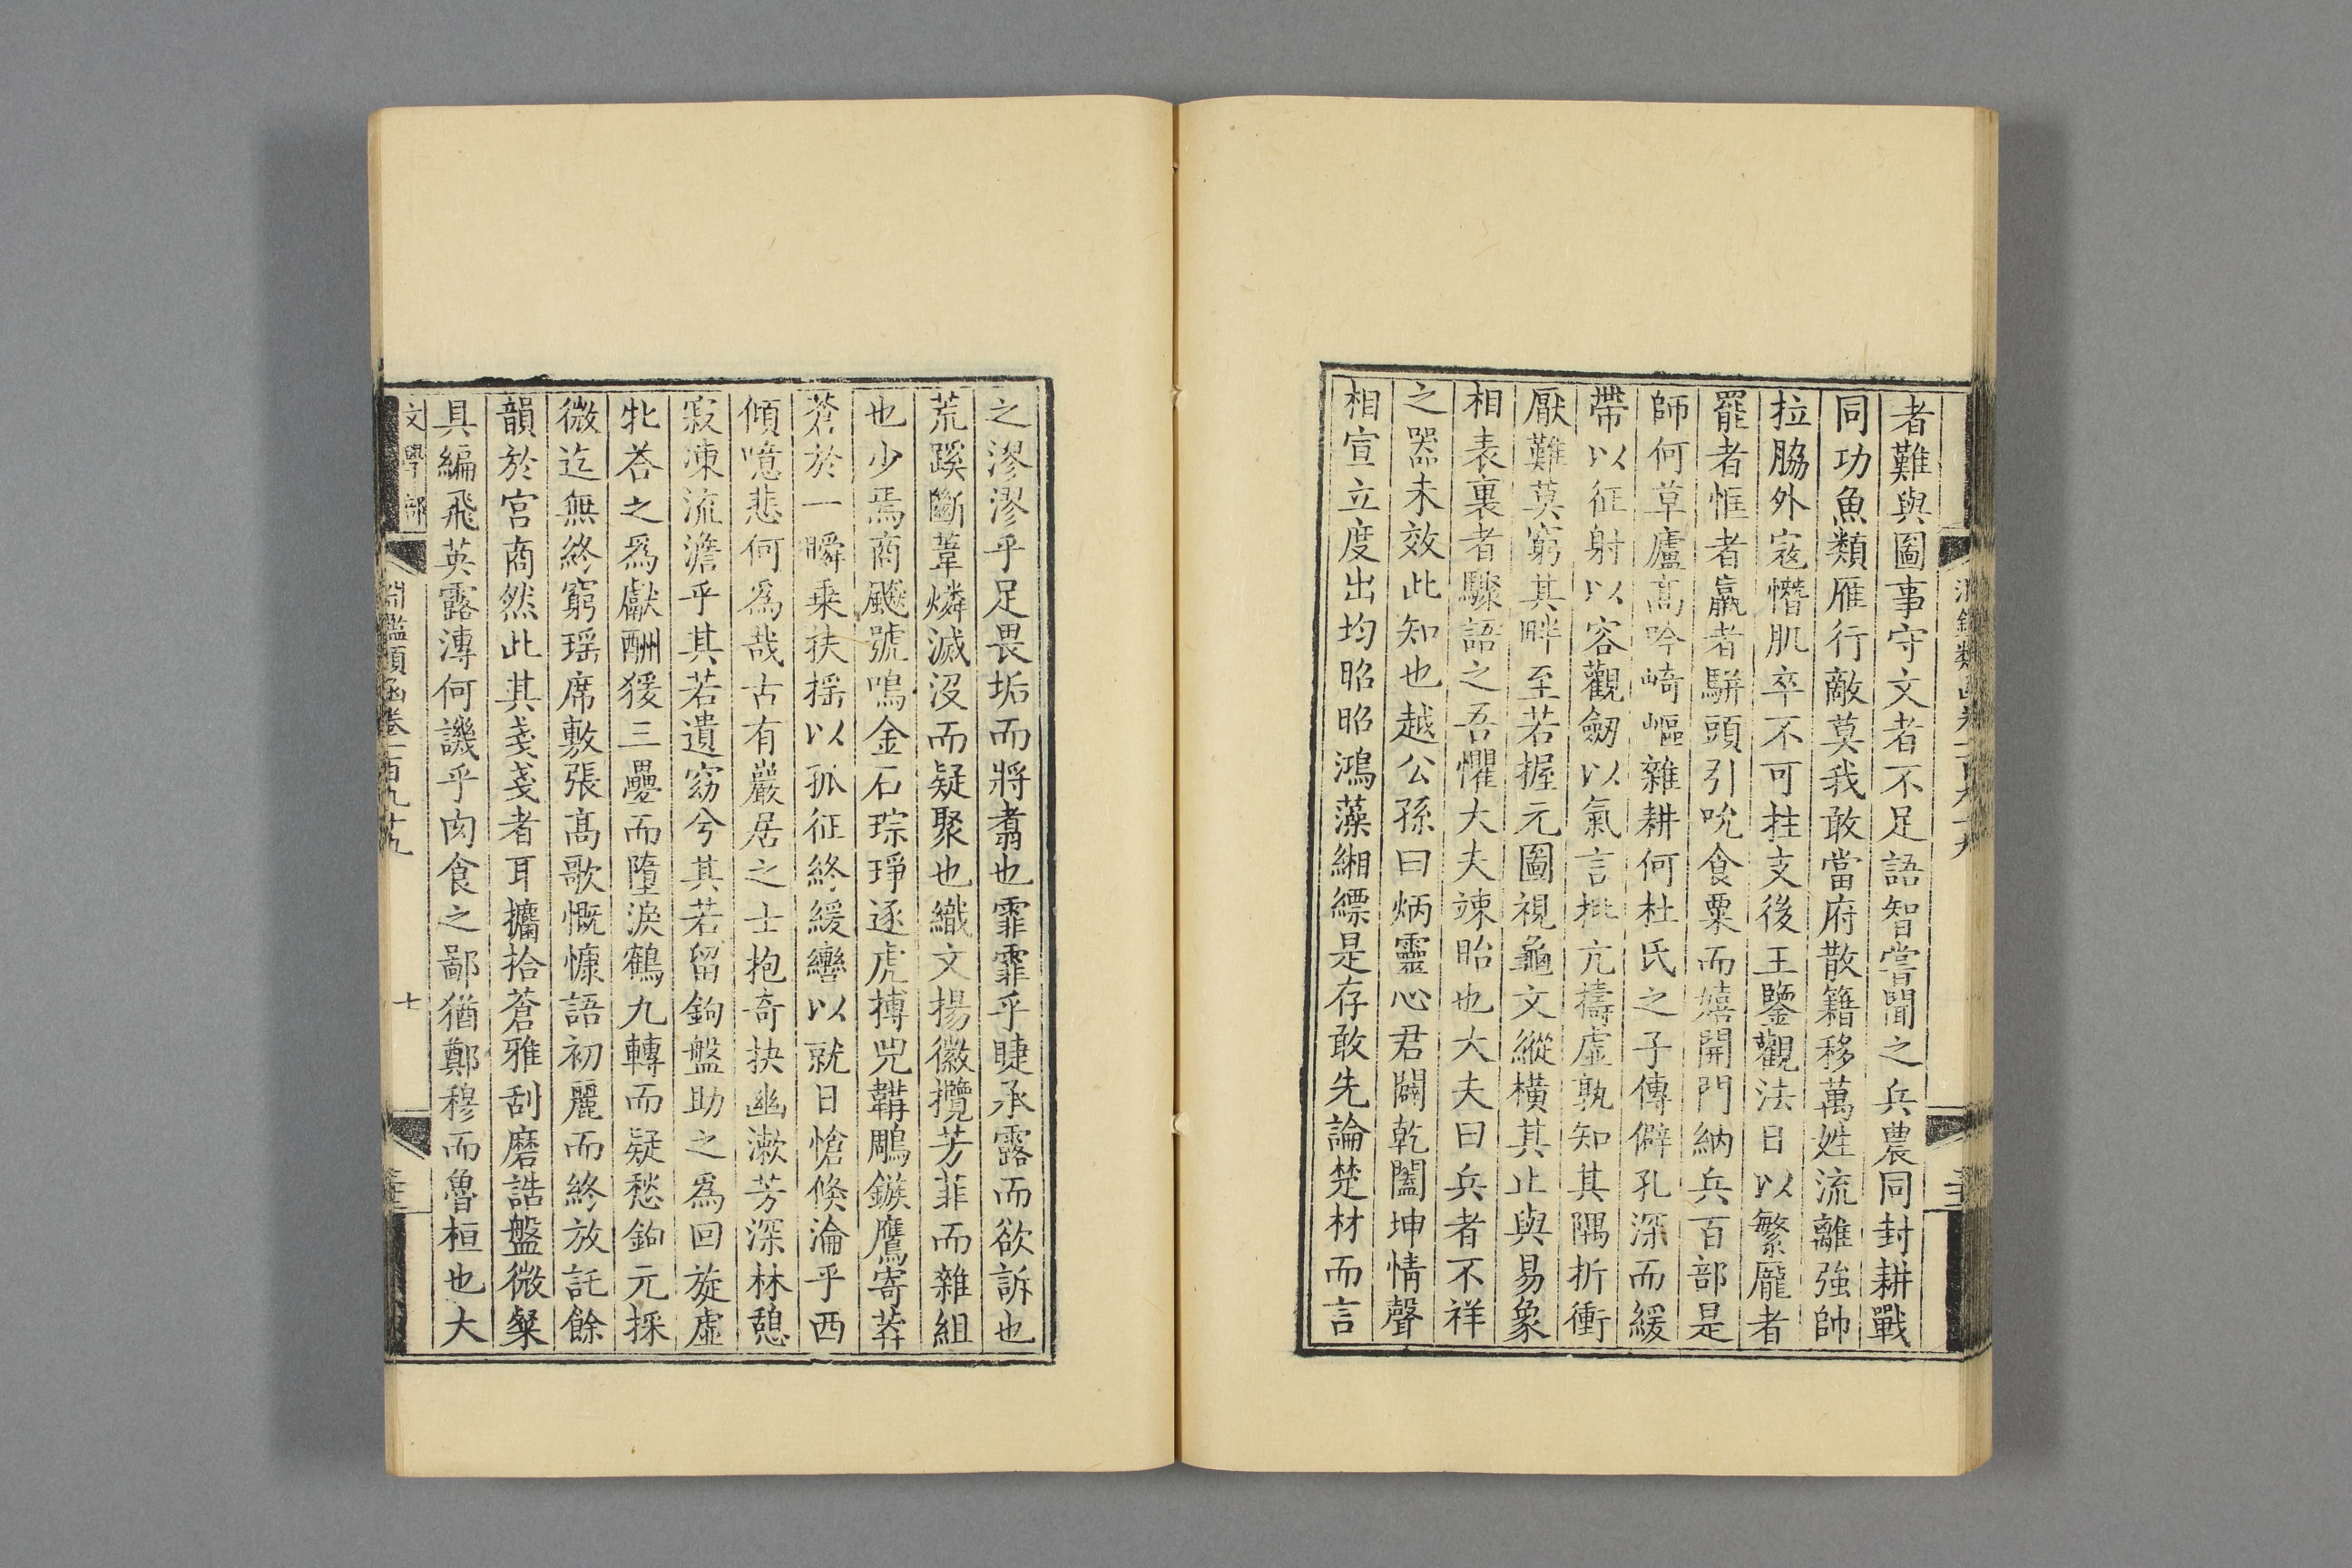 者難與圖事守文者不足語智嘗聞之兵農同封耕戰
同功魚類雁行敵莫我敢當府散籍移萬姓流離強帥
拉脇外寇憯肌卒不可拄支後王鑒觀法日以繁龎者
罷者恇者羸者駢頭引吮食粟而嬉開門納兵百部是
師何草廬高吟崎嶇雜耕何杜氏之子傳僻孔深而緩
帶以征射以容觀劒以氣言批亢擣虛孰知其隅折衝
厭難莫窮其畔至若握元圖視龜文縱橫其止與易象
相表裏者驟語之吾懼大夫竦眙也大夫曰兵者不祥
之器未效此知也越公孫曰炳靈心君闢乾闔坤情聲
相宣立度出均昭昭鴻藻緗縹是存敢先論楚材而言
之漻漻乎足畏垢而將翥也霏霏乎睫承露而欲訴也
荒蹊斷葦燐滅沒而疑聚也織文揚徽攬芳菲而雜組
也少焉商飇號鳴金石琮琤逐虎搏兕韝鵰鏃鷹寄莽
蒼於一瞬乗扶揺以孤征終緩轡以就日愴倐淪乎西
傾噫悲何爲哉古有巖居之士抱奇抉幽漱芳深林憩
寂凍流澹乎其若遺窈兮其若留鉤盤助之爲回旋虛
牝荅之爲獻酬猨三疊而墮淚鶴九轉而疑愁鉤元採
微迄無終窮瑶席敷張髙歌慨慷語初麗而終放託餘
韻於宮商然此其戔戔者耳攟拾蒼雅刮磨誥盤微粲
具編飛英露溥何譏乎肉食之鄙猶鄭穆而魯桓也大
文學部
淵鑑類函卷一百九十五
七